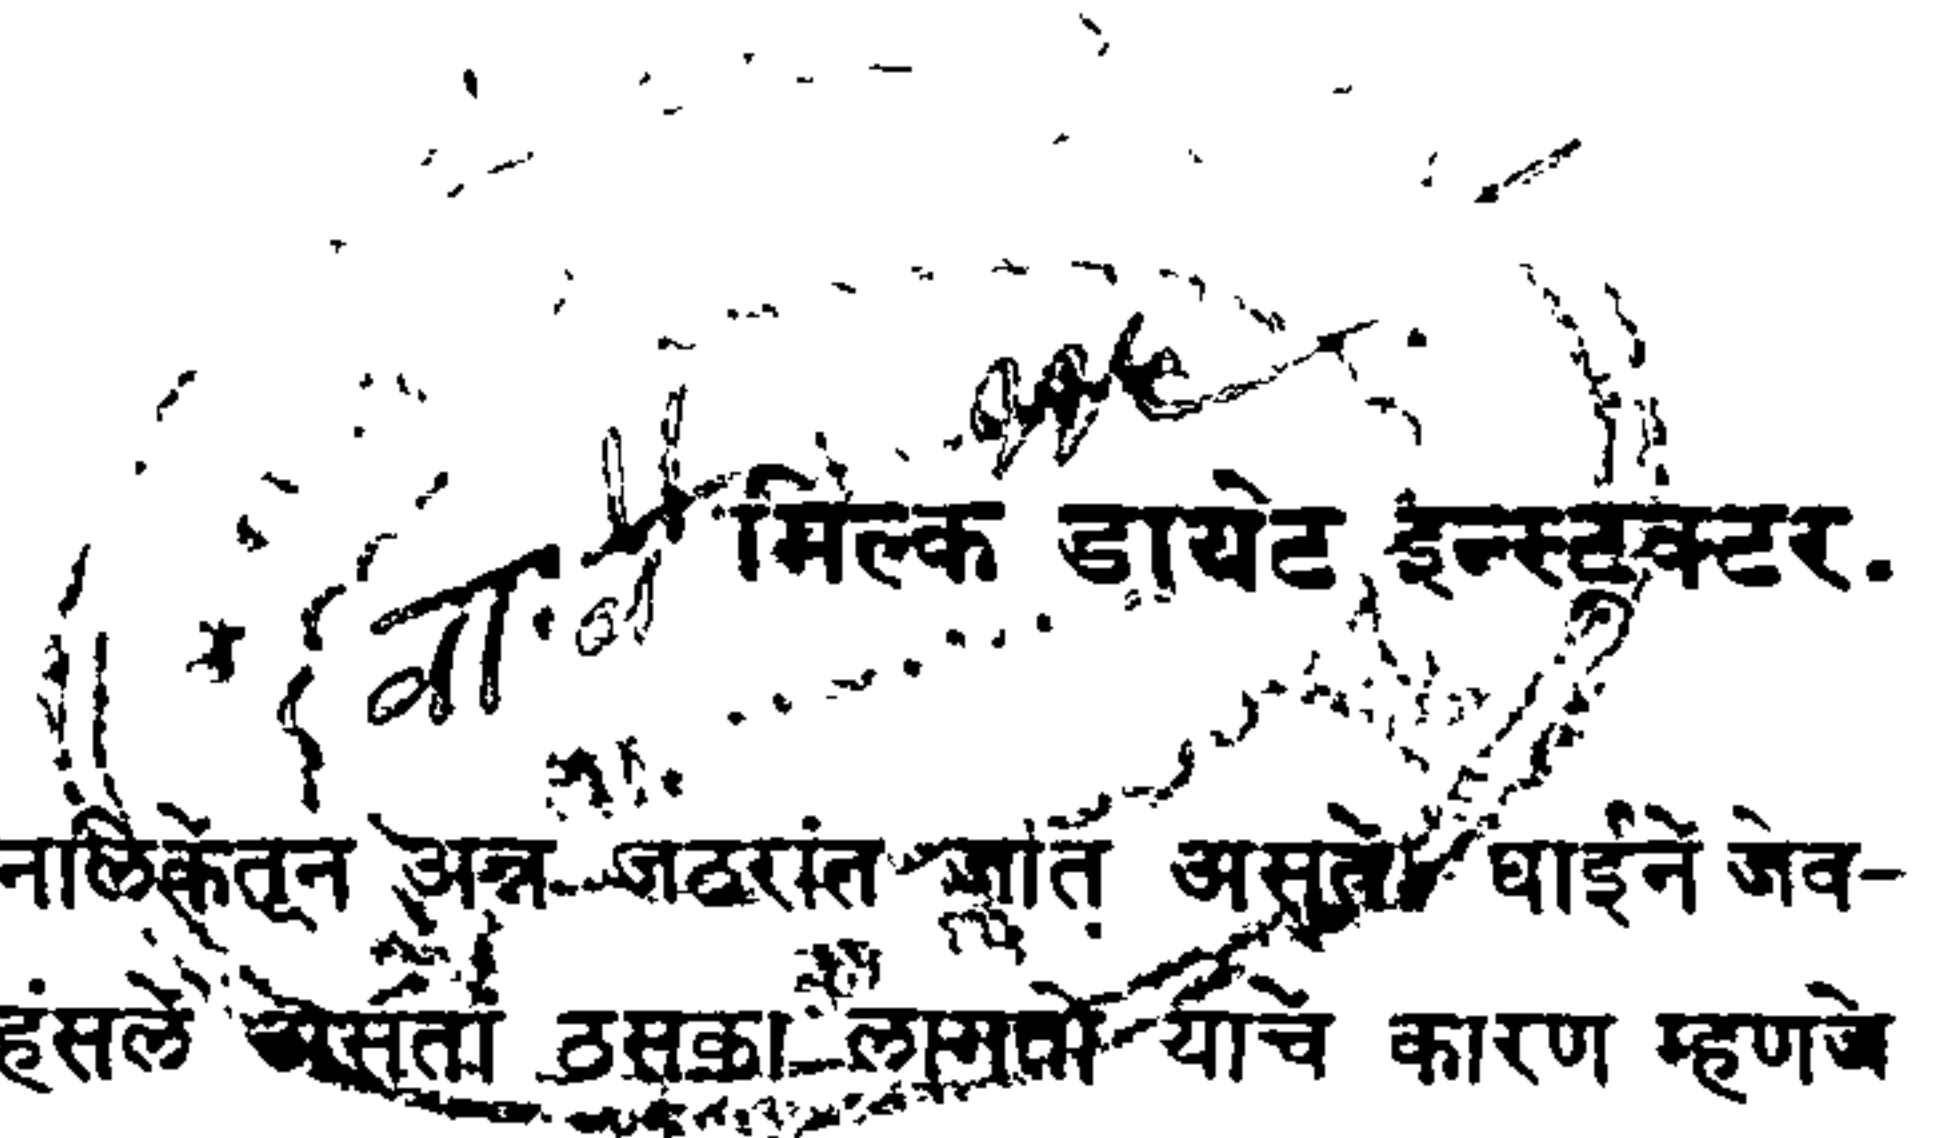 मिल्क डायेट इन्स्ट्रक्टर.
नलिकेंतून अन्न जठरांत जात असतें घाईनें जेव-
हंसलें असतां ठसका लागतो याचें कारण म्हणजे